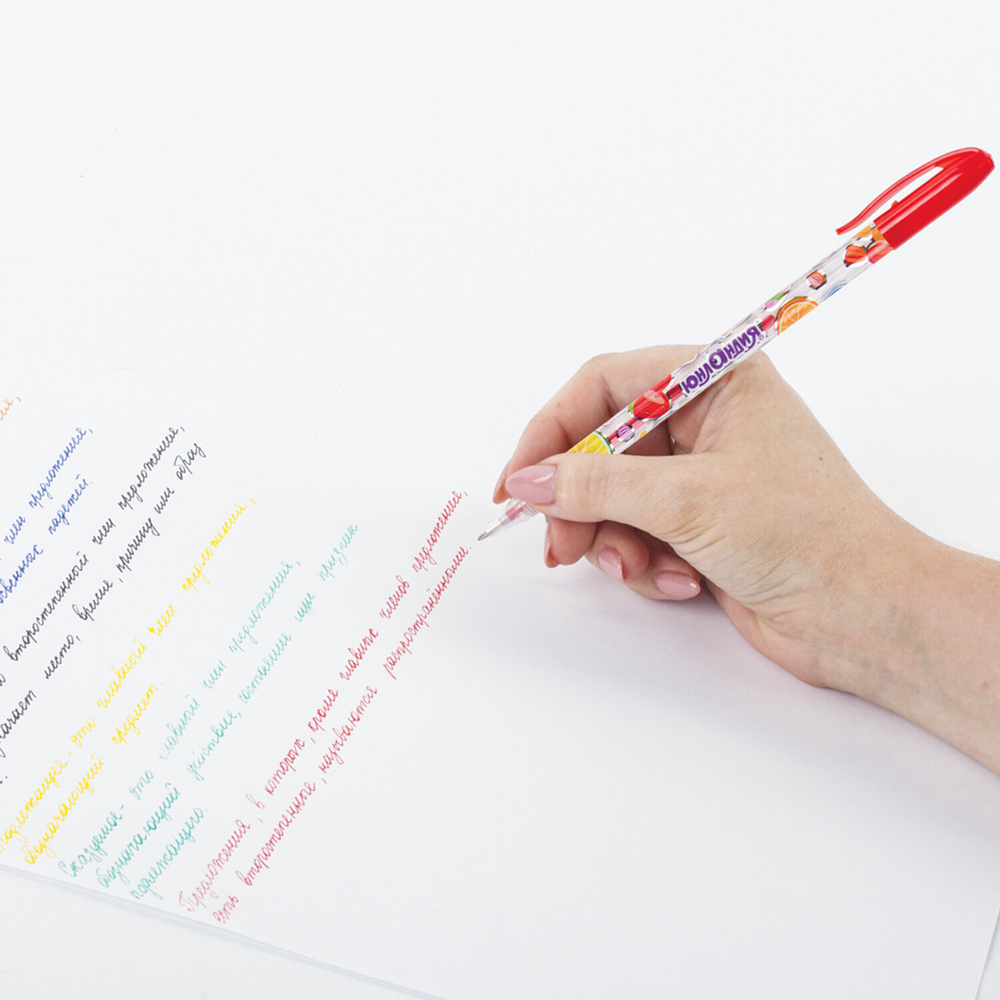 член предложения,
косвенных падежей.
второстепенный член предложения,
место, время, причину или образ
Подлежащее - это главный член предложения,
обозначающий предмет.
Сказуемое - это главный член предложения,
обозначающий действие, состояние или признак
подлежащего.
Предложения, в которых, кроме главных членов предложения,
есть второстепенные, называются распространёнными.
ЮНЛАНДИЯ